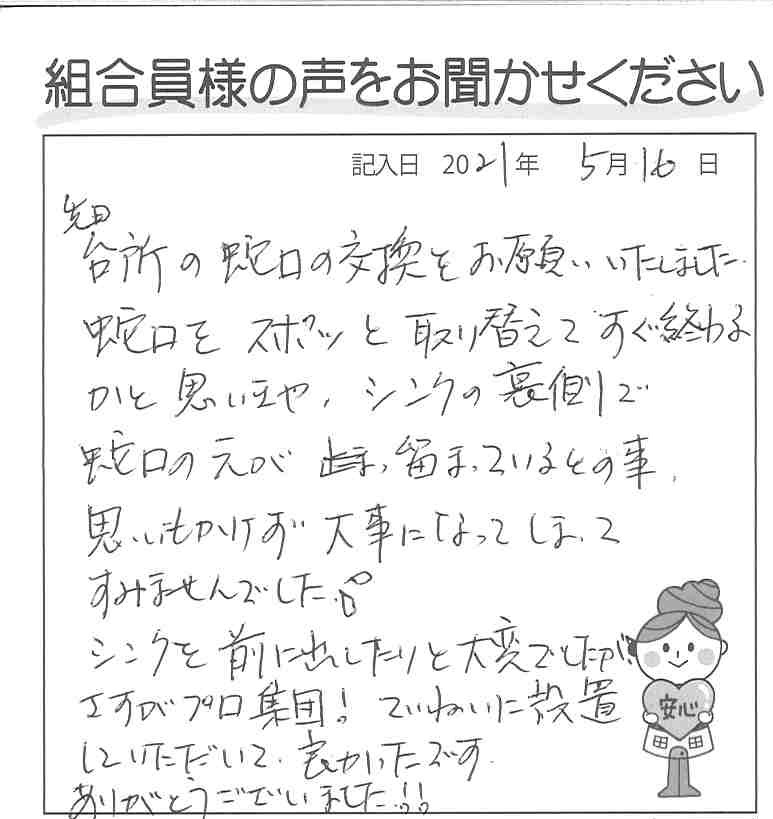 組合員様の声をお聞かせください
記入日 2021年 5月16日
先日
台所の蛇口の交換をお願いいたしました.
蛇口をスポッと取り替えてすぐ終わる
かと思いきや、シンクの裏側で
蛇口の元が 留まっているとの事、
思いもかけず大事になってしまって
すみませんでした。
シンクを前に出したりと大変でしたが
さすがプロ集団! ていねいに設置
していただいて、良かったです.
ありがとうございました!!
安心